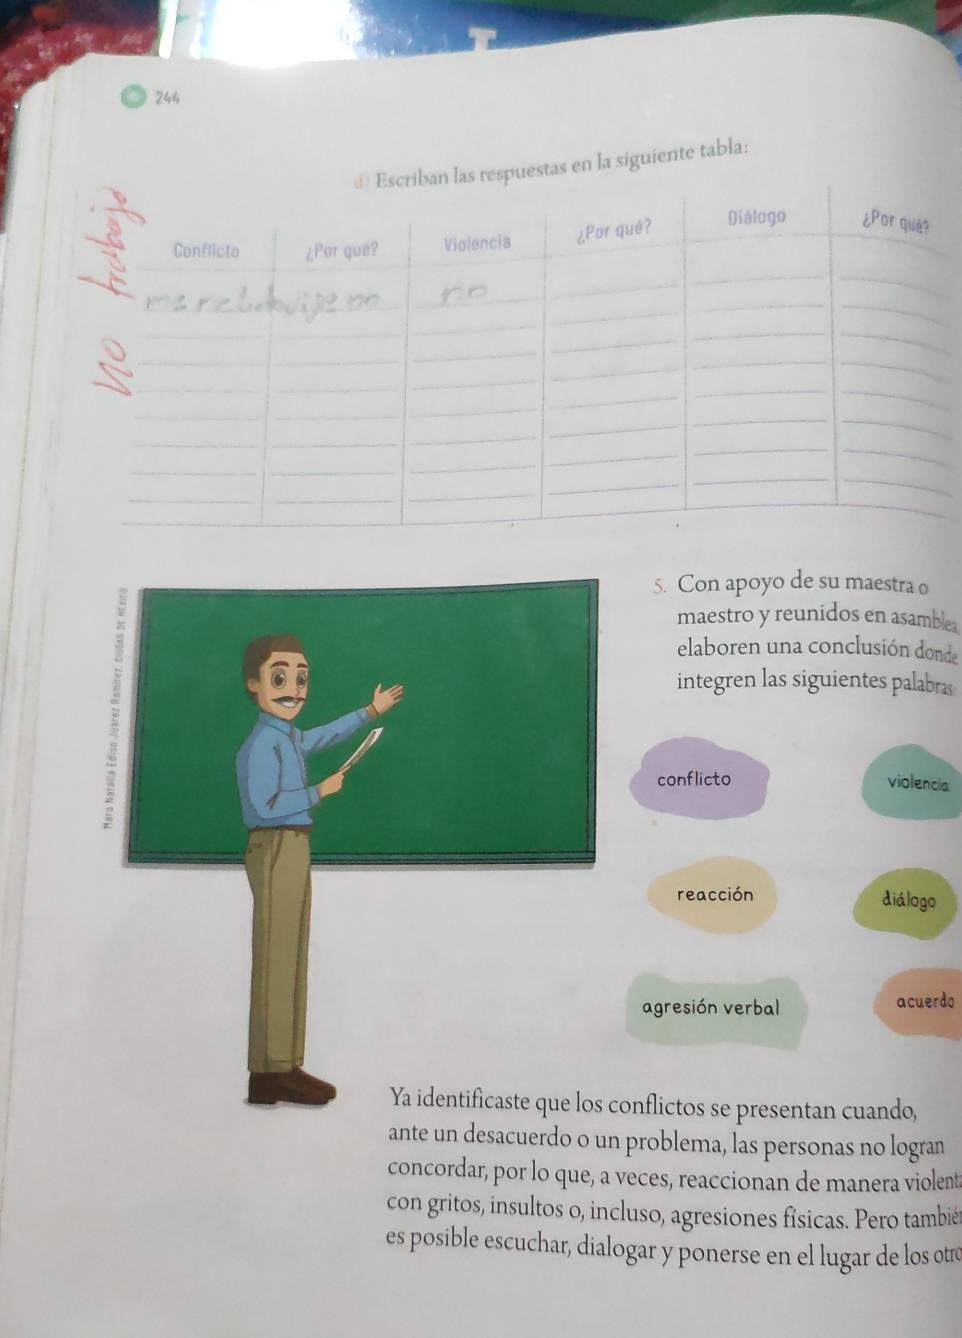 244
d) Escriban las respuestas en la siguiente tabla:
no trabajo
Conflicto ¿Por qué? Violencia ¿Por qué? Diálogo ¿Por qué?
no
5. Con apoyo de su maestra o
maestro y reunidos en asamblea,
elaboren una conclusión donde
integren las siguientes palabras:
conflicto violencia
reacción diálogo
agresión verbal acuerdo
Mara Natalia Edisa Juárez Ramírez, CIUDAD DE MÉXICO
Ya identificaste que los conflictos se presentan cuando,
ante un desacuerdo o un problema, las personas no logran
concordar, por lo que, a veces, reaccionan de manera violenta
con gritos, insultos o, incluso, agresiones físicas. Pero también
es posible escuchar, dialogar y ponerse en el lugar de los otro